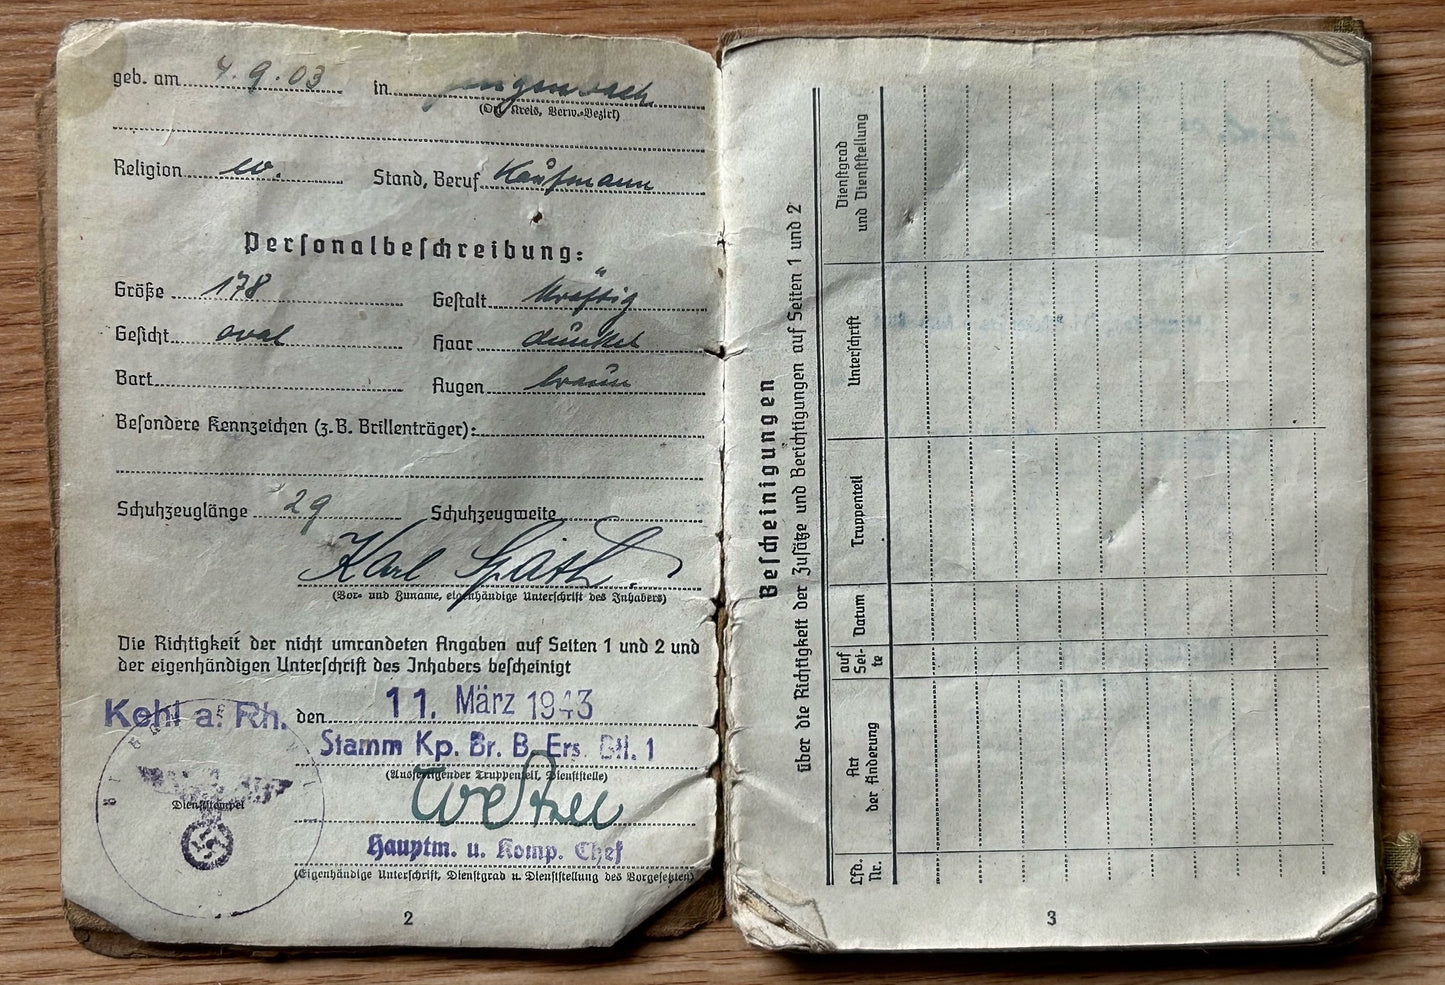 geb. am 4.9.03 in Gengenbach
(Ort, Kreis, Verw.-Bezirk)
Religion ev. Stand, Beruf Kaufmann
Personalbeschreibung:
Größe 178 Gestalt kräftig
Gesicht oval Haar dunkel
Bart Augen braun
Besondere Kennzeichen (z.B. Brillenträger):
Schuhzeuglänge 29 Schuhzeugweite
Karl Späth.
(Vor- und Zuname, eigenhändige Unterschrift des Inhabers)
Die Richtigkeit der nicht umrandeten Angaben auf Seiten 1 und 2 und
der eigenhändigen Unterschrift des Inhabers bescheinigt
Kehl a. Rh. den 11. März 1943
Stamm Kp. Br. B. Ers. Btl. 1
(Ausfertigender Truppenteil, Dienststelle)
Dienststempel
Hauptm. u. Komp. Chef
(Eigenhändige Unterschrift, Dienstgrad u. Dienststellung des Vorgesetzten)
2
Bescheinigungen
über die Richtigkeit der Zusätze und Berichtigungen auf Seiten 1 und 2
Lfd.
Nr.
Art
der Änderung
auf
Sei-
te
Datum
Truppenteil
Unterschrift
Dienstgrad
und Dienststellung
3